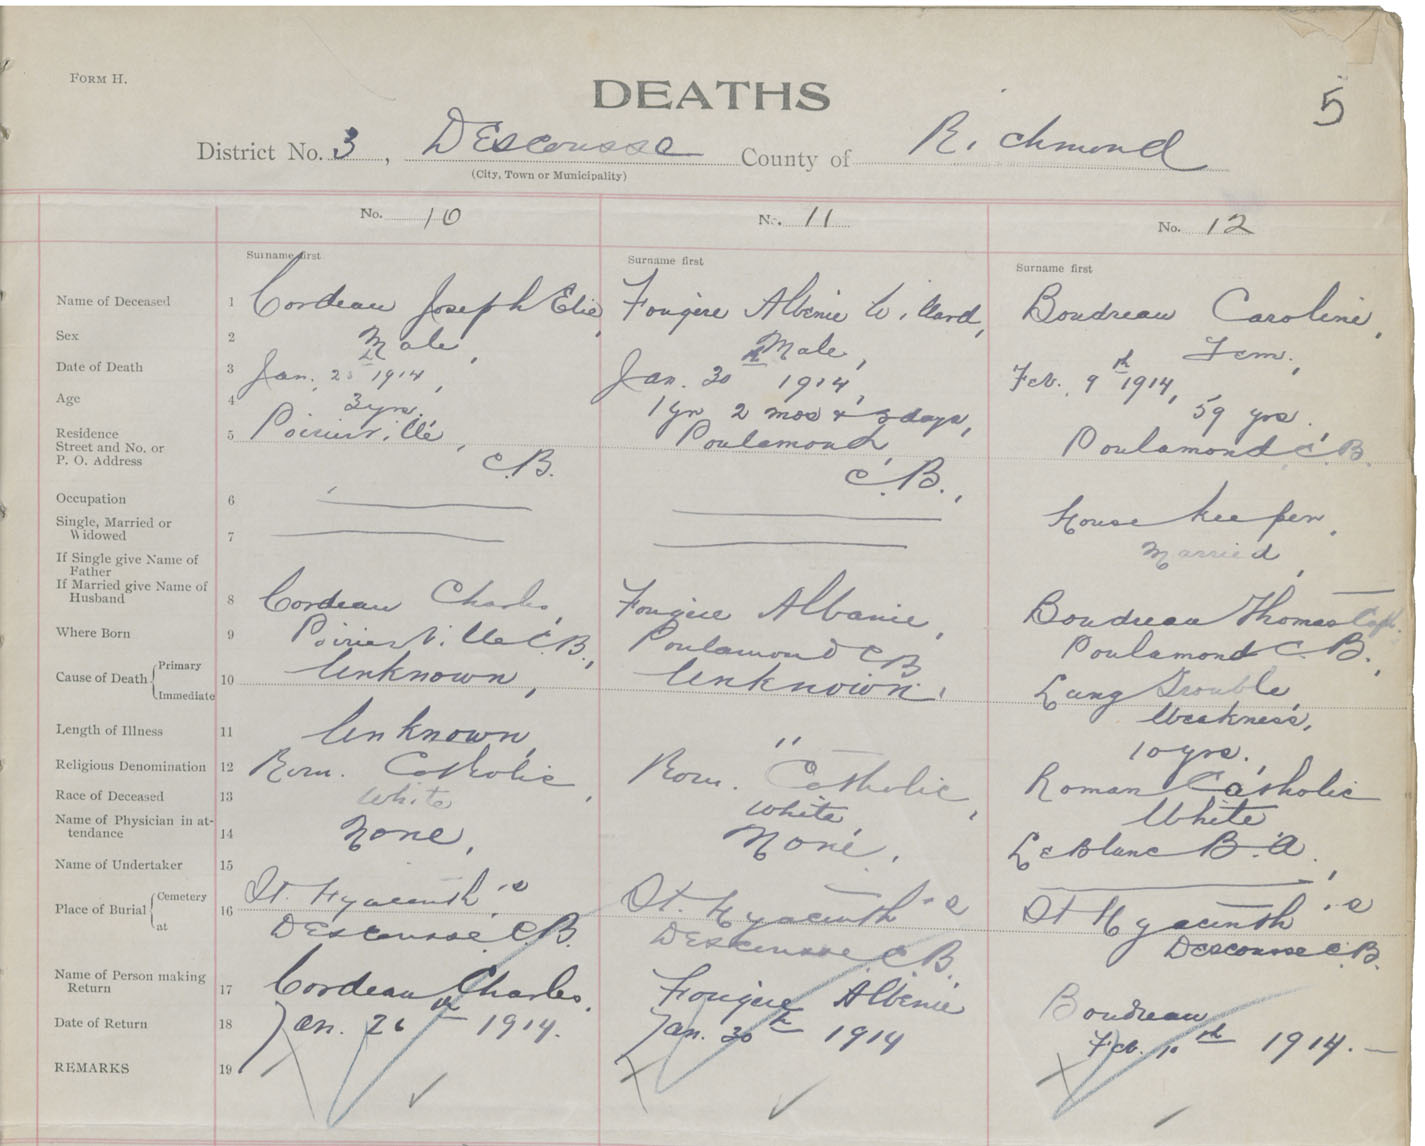 FORM H.
DEATHS
5
District No. 3, DEscousse County of Richmond
(City, Town or Municipality)
No. 10 No. 11 No. 12
Surname first Surname first Surname first
Name of Deceased 1 Cordeau Joseph Elie Fougere Albenie Willard, Boudreau Caroline,
Sex 2 Male, Male, Fem.,
Date of Death 3 Jan. 1914, Jan. 30th 1914, Feb. 9th 1914,
Age 4 3 yrs. 1 yr 2 mos & 3 days, 59 yrs.
Residence Street and No. or P. O. Address 5 Poirierville, C.B. Poulamond, C.B., Poulamond, C.B.
Occupation 6 House keeper,
Single, Married or Widowed 7 Married,
If Single give Name of Father
If Married give Name of Husband 8 Cordeau Charles, Fougere Albanie, Boudreau Thomas Capt.
Where Born 9 Poirierville C.B., Poulamond C B Poulamond C.B.,
Cause of Death Primary Immediate 10 Unknown, Unknown, Lung Trouble Weakness,
Length of Illness 11 Unknown, " 10 yrs.,
Religious Denomination 12 Rom. Catholic, Rom. Catholic, Roman Catholic
Race of Deceased 13 White White, White,
Name of Physician in attendance 14 None, None, LeBlanc B.A.
Name of Undertaker 15
Place of Burial Cemetery at 16 St. Hyacinth's St. Hyacinth's St Hyacinth's
DEscousse, C.B. DEscousse C.B. DEscousse C.B.
Name of Person making Return 17 Cordeau Charles, Fougere Albenie Boudreau
Date of Return 18 Jan. 26th 1914. Jan. 30th 1914 Feb. 1914.
REMARKS 19